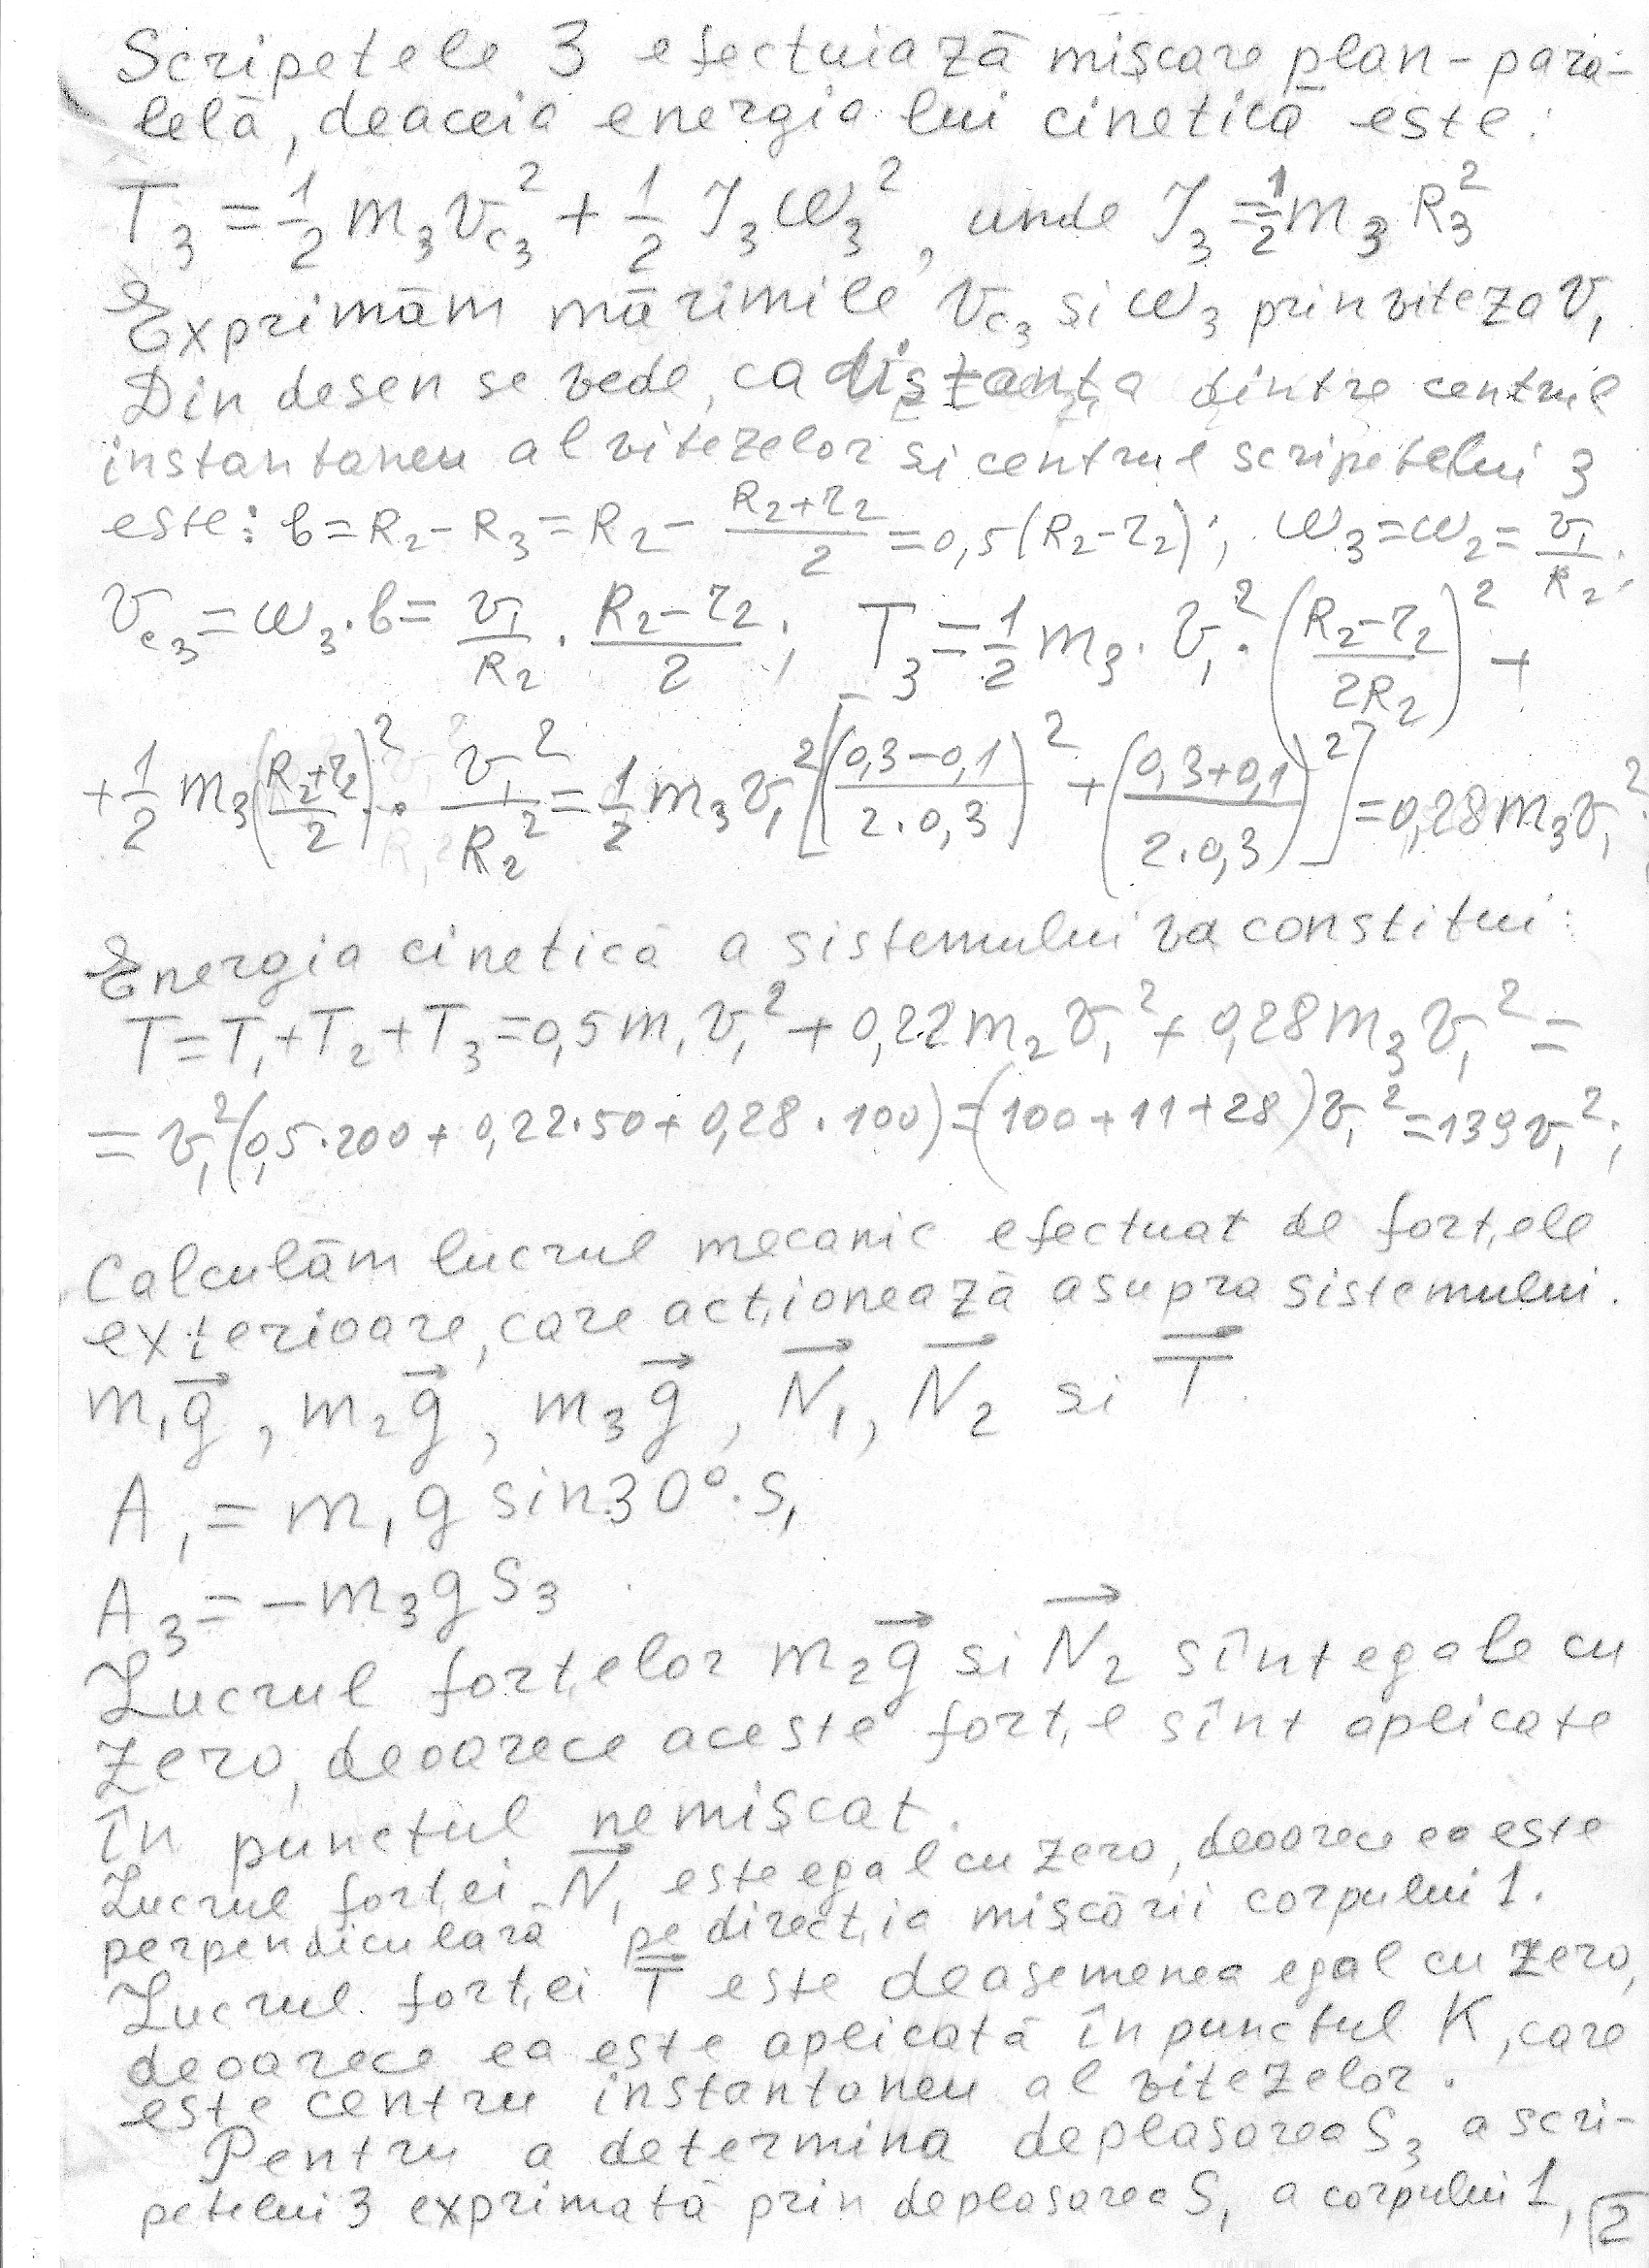 Scripetele 3 efectuiază mişcare plan-para-
lelă, deaceia energia lui cinetică este:
T₃ = 1/2 m₃ v_c₃² + 1/2 J₃ ω₃², unde J₃ = 1/2 m₃ R₃²
Exprimăm mărimile v_c₃ si ω₃ prin viteza v₁
Din desen se vede, ca distanţa dintre centrul
instantaneu al vitezelor si centrul scripetelui 3
este: b = R₂ - R₃ = R₂ - (R₂+r₂)/2 = 0,5(R₂-r₂); ω₃ = ω₂ = v₁/R₂;
v_c₃ = ω₃·b = v₁/R₂ · (R₂-r₂)/2; T₃ = 1/2 m₃·v₁²·((R₂-r₂)/2R₂)² +
+ 1/2 m₃((R₂+r₂)/2)² · v₁²/R₂² = 1/2 m₃v₁²[((0,3-0,1)/2·0,3)² + ((0,3+0,1)/2·0,3)²] = 0,28m₃v₁²;
Energia cinetică a sistemului va constitui:
T = T₁ + T₂ + T₃ = 0,5m₁v₁² + 0,22m₂v₁² + 0,28m₃v₁² =
= v₁²(0,5·200 + 0,22·50 + 0,28·100) = (100+11+28)v₁² = 139v₁²;
Calculăm lucrul mecanic efectuat de forţele
exterioare, care acţionează asupra sistemului.
m₁g⃗, m₂g⃗, m₃g⃗, N⃗₁, N⃗₂ si T⃗.
A₁ = m₁g sin30°·S₁
A₃ = -m₃gS₃
Lucrul forţelor m₂g⃗ si N⃗₂ sînt egale cu
zero, deoarece aceste forţe sînt aplicate
în punctul nemişcat.
Lucrul forţei N⃗₁ este egal cu zero, deoarece ea este
perpendiculară pe direcţia mişcării corpului 1.
Lucrul forţei T̄ este deasemenea egal cu zero,
deoarece ea este aplicată în punctul K, care
este centru instantaneu al vitezelor.
Pentru a determina deplasarea S₃ a scri-
petelui 3 exprimată prin deplasarea S₁ a corpului 1,
2